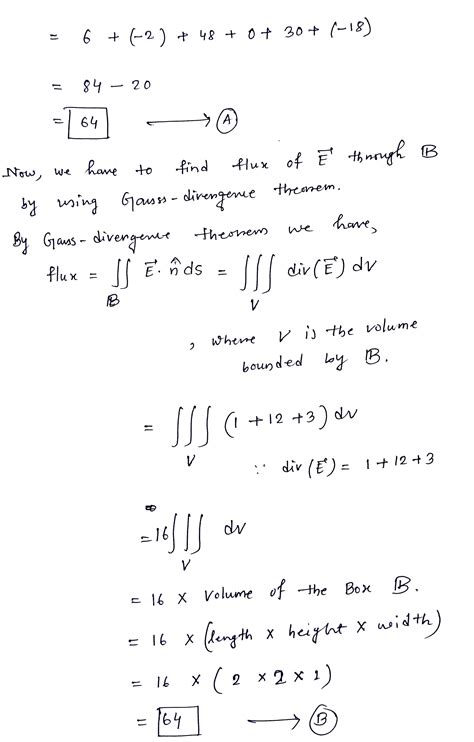 = 6 + (-2) + 48 + 0 + 30 + (-18)
= 84 - 20
= 64 ⟶ Ⓐ
Now, we have to find flux of E⃗ through B
by using Gauss-divergence theorem.
By Gauss-divergence theorem we have,
flux = ∬ E⃗ · n̂ ds = ∭ div(E⃗) dv
B V
, where V is the volume
bounded by B.
= ∭ (1 + 12 + 3) dv
V ∵ div(E⃗) = 1 + 12 + 3
= 16 ∭ dv
V
= 16 × Volume of the Box B.
= 16 × (length × height × width)
= 16 × ( 2 × 2 × 1 )
= 64 ⟶ Ⓑ